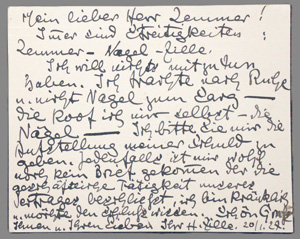 Mein lieber Herr Zemmer!
Immer sind Streitigkeiten:
Zemmer – Nagel – Zille.
Ich will nichts mit zu tun
haben. Ich trachte nach Ruhe
u. nicht Nagel zum Sarg –
die koof ich mir selbst – die
Nagel – Ich bitte Sie mir die
Aufstellung meiner Schuld zu
geben. Jedenfalls ist mir wohl
noch kein Brief gekommen der die
geschäftliche Tätigkeit unseres
Vertrages beschließt, ich bin kränklich
u. möchte den Schluß wissen. Schön Gruß
Ihnen u. Ihren Lieben Ihr H. Zille. 20/1.22.